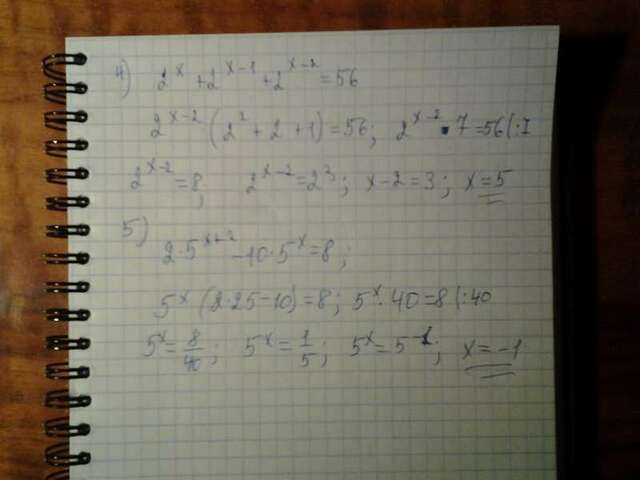 4) 2^x + 2^(x-1) + 2^(x-2) = 56
2^(x-2) (2² + 2 + 1) = 56; 2^(x-2) · 7 = 56 |:7
2^(x-2) = 8; 2^(x-2) = 2³; x-2 = 3; x = 5
5)
2·5^(x+2) - 10·5^x = 8;
5^x (2·25 - 10) = 8; 5^x · 40 = 8 |:40
5^x = 8/40; 5^x = 1/5; 5^x = 5^(-1); x = -1